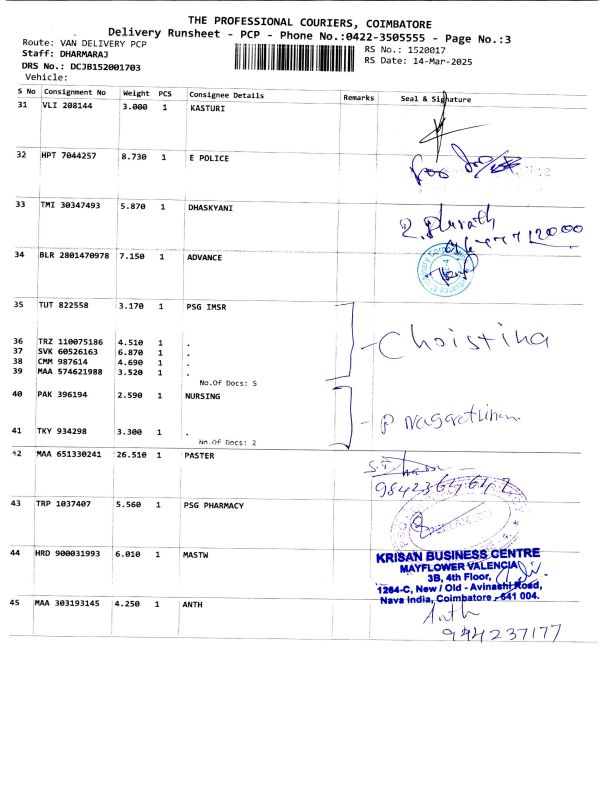 THE PROFESSIONAL COURIERS, COIMBATORE
Delivery Runsheet - PCP - Phone No.:0422-3505555 - Page No.:3
Route: VAN DELIVERY PCP RS No.: 1520017
Staff: DHARMARAJ RS Date: 14-Mar-2025
DRS No.: DCJB152001703
Vehicle:
S No Consignment No Weight PCS Consignee Details Remarks Seal & Signature
31 VLI 208144 3.000 1 KASTURI
32 HPT 7044257 8.730 1 E POLICE
33 TMI 30347493 5.870 1 DHASKYANI
34 BLR 2801470978 7.150 1 ADVANCE
35 TUT 822558 3.170 1 PSG IMSR
36 TRZ 110075186 4.510 1 .
Choistina
37 SVK 60526163 6.870 1 .
38 CMM 987614 4.690 1 .
39 MAA 574621988 3.520 1 .
No.Of Docs: 5
40 PAK 396194 2.590 1 NURSING
41 TKY 934298 3.300 1 .
No.Of Docs: 2
42 MAA 651330241 26.510 1 PASTER
43 TRP 1037407 5.560 1 PSG PHARMACY
44 HRD 900031993 6.010 1 MASTW
KRISAN BUSINESS CENTRE
MAYFLOWER VALENCIA
3B, 4th Floor,
1264-C, New / Old - Avinashi Road,
Nava India, Coimbatore - 641 004.
45 MAA 303193145 4.250 1 ANTH
Anth